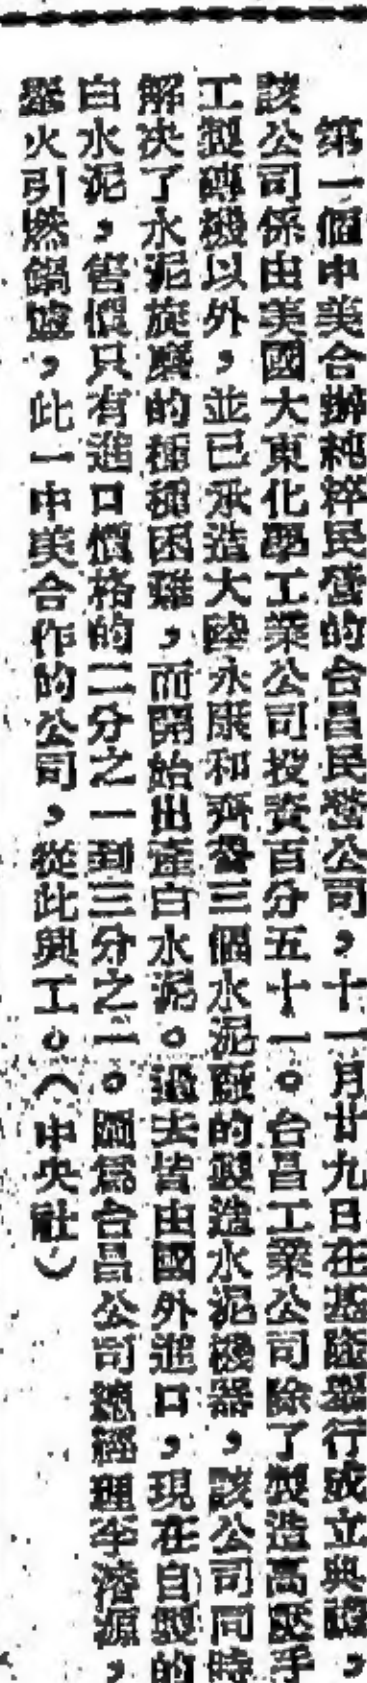 第一個中美合辦純粹民營的台昌民營公司,十一月廿九日在基隆舉行成立典禮,
該公司係由美國大東化學工業公司投資百分五十一。台昌工業公司除了製造高壓手
工製磚機以外,並已承造大陸永康和齊魯三個水泥廠的製造水泥機器,該公司同時
解決了水泥旋窯的種種困難,而開始出產白水泥。過去皆由國外進口,現在自製的
白水泥,售價只有進口價格的二分之一到三分之二。圖為台昌公司總經理李濟源,
舉火引燃鍋爐,此一中美合作的公司,從此興工。(中央社)